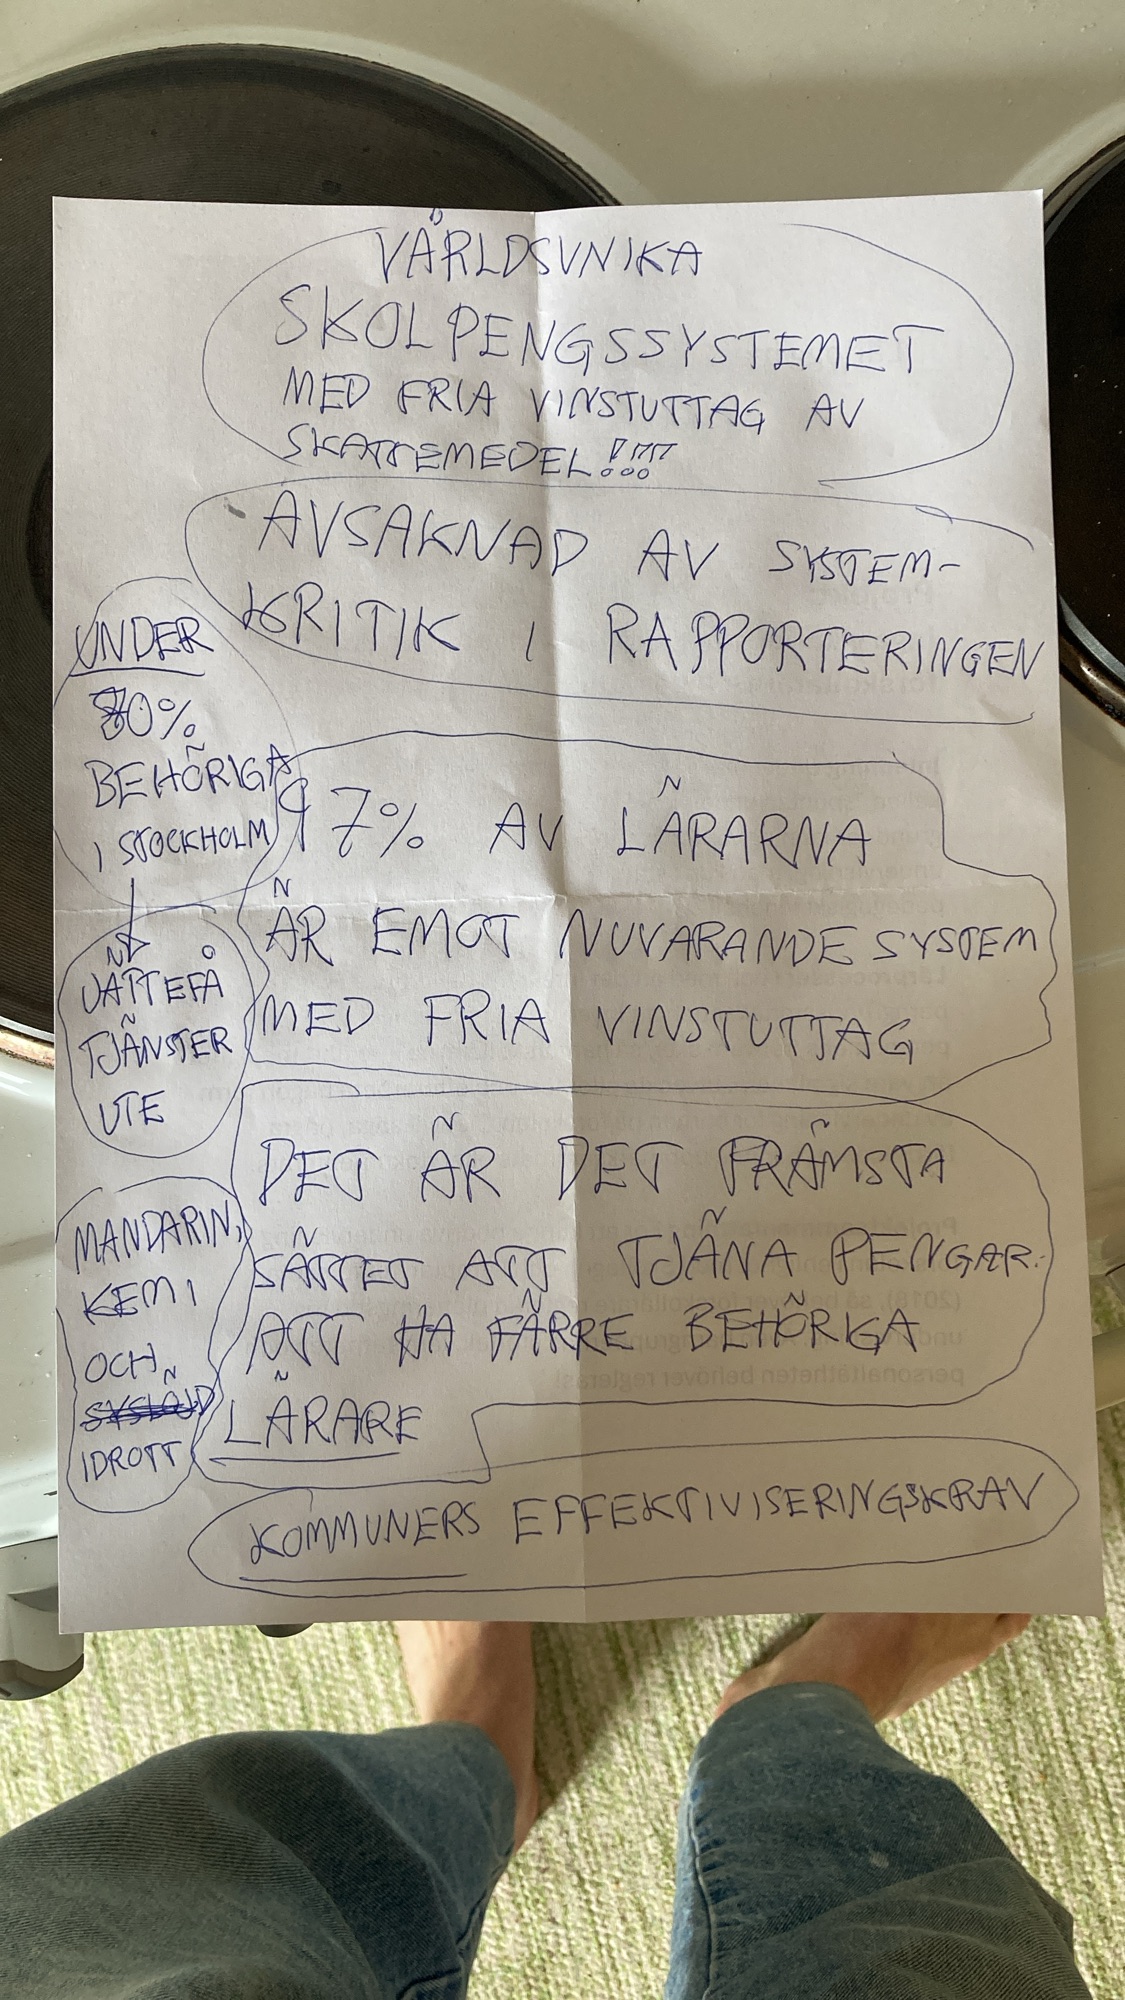 VÄRLDSUNIKA
SKOLPENGSSYSTEMET
MED FRIA VINSTUTTAG AV
SKATTEMEDEL!!!!
AVSAKNAD AV SYSTEM-
KRITIK I RAPPORTERINGEN
UNDER
80%
BEHÖRIGA
I STOCKHOLM
JÄTTEFÅ
TJÄNSTER
UTE
MANDARIN,
KEMI
OCH
IDROTT
97% AV LÄRARNA
ÄR EMOT NUVARANDE SYSTEM
MED FRIA VINSTUTTAG
DET ÄR DET FRÄMSTA
SÄTTET ATT TJÄNA PENGAR:
ATT HA FÄRRE BEHÖRIGA
LÄRARE
KOMMUNERS EFFEKTIVISERINGSKRAV
(2018), så
personaltätheten behöver regleras!